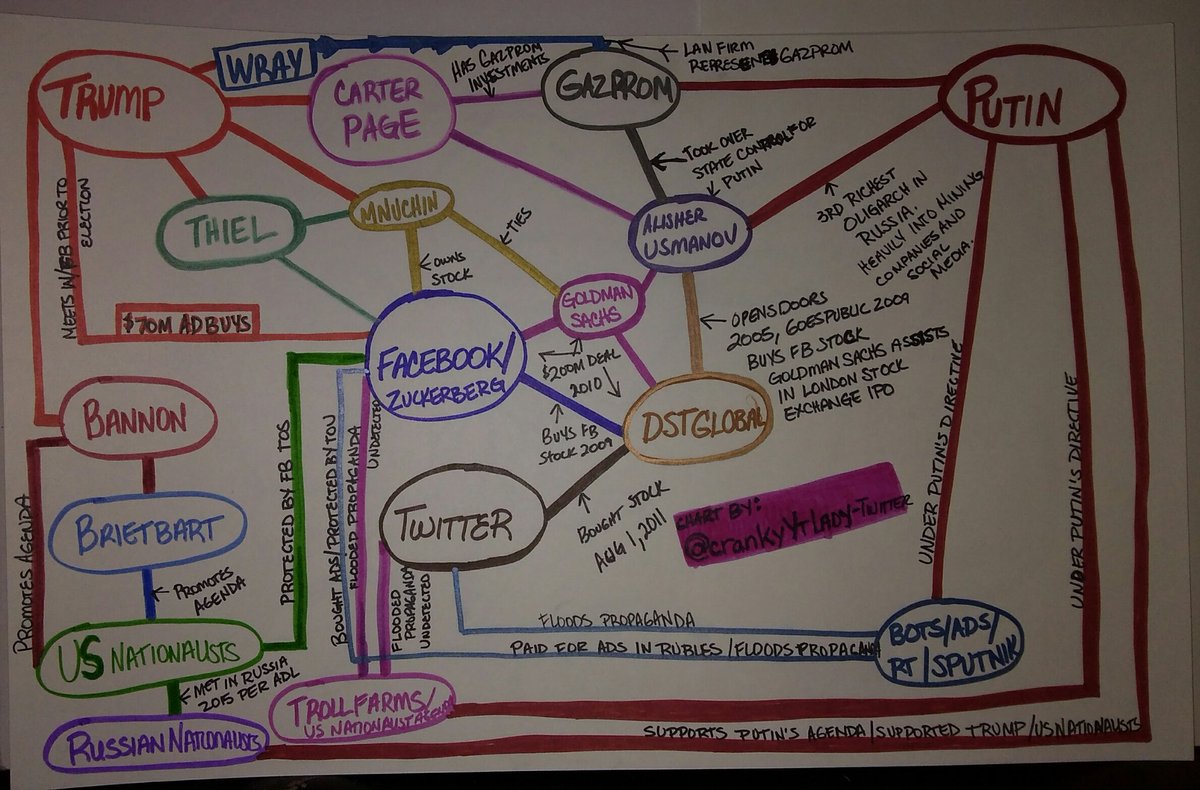 WRAY
TRUMP
CARTER
PAGE
HAS GAZPROM
INVESTMENTS
GAZPROM
LAW FIRM
REPRESENTS GAZPROM
PUTIN
TOOK OVER
STATE CONTROL FOR
PUTIN
3RD RICHEST
OLIGARCH IN
RUSSIA.
HEAVILY INTO MINING
COMPANIES AND
SOCIAL
MEDIA.
MEETS W/FB PRIOR TO
ELECTION
THIEL
MNUCHIN
TIES
ALISHER
USMANOV
OWNS
STOCK
GOLDMAN
SACHS
$70M AD BUYS
FACEBOOK/
ZUCKERBERG
$200M DEAL
2010
OPENS DOORS
2005, GOES PUBLIC 2009
BUYS FB STOCK
GOLDMAN SACHS ASSISTS
IN LONDON STOCK
EXCHANGE IPO
BANNON
BUYS FB
STOCK 2009
DST GLOBAL
PROTECTED BY FB TOS
BOUGHT ADS/PROTECTED BY TOU
FLOODED PROPAGANDA
UNDETECTED
TWITTER
BOUGHT STOCK
AUG 1, 2011
CHART BY:
@crankyYtLady-Twitter
UNDER PUTIN'S DIRECTIVE
UNDER PUTIN'S DIRECTIVE
PROMOTES AGENDA
BRIETBART
PROMOTES
AGENDA
FLOODED
PROPAGANDA
UNDETECTED
FLOODS PROPAGANDA
PAID FOR ADS IN RUBLES/FLOODS PROPAGANDA
BOTS/ADS/
RT/SPUTNIK
US NATIONALISTS
MET IN RUSSIA
2015 PER ADL
TROLL FARMS/
US NATIONALIST
RUSSIAN NATIONALISTS
SUPPORTS PUTIN'S AGENDA/SUPPORTED TRUMP/US NATIONALISTS